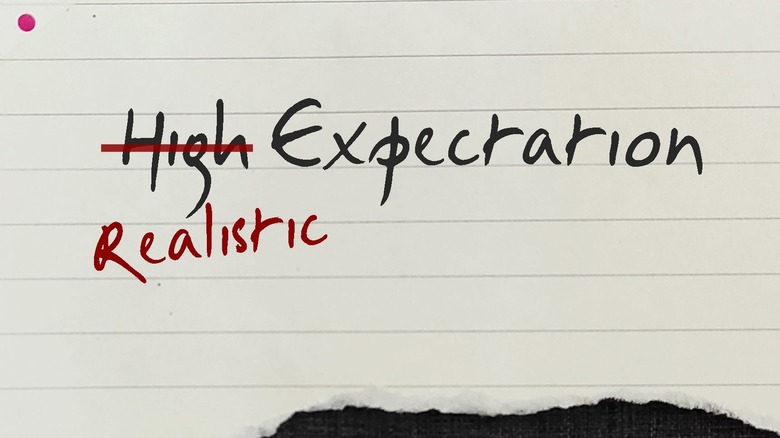 High Expectation
Realistic